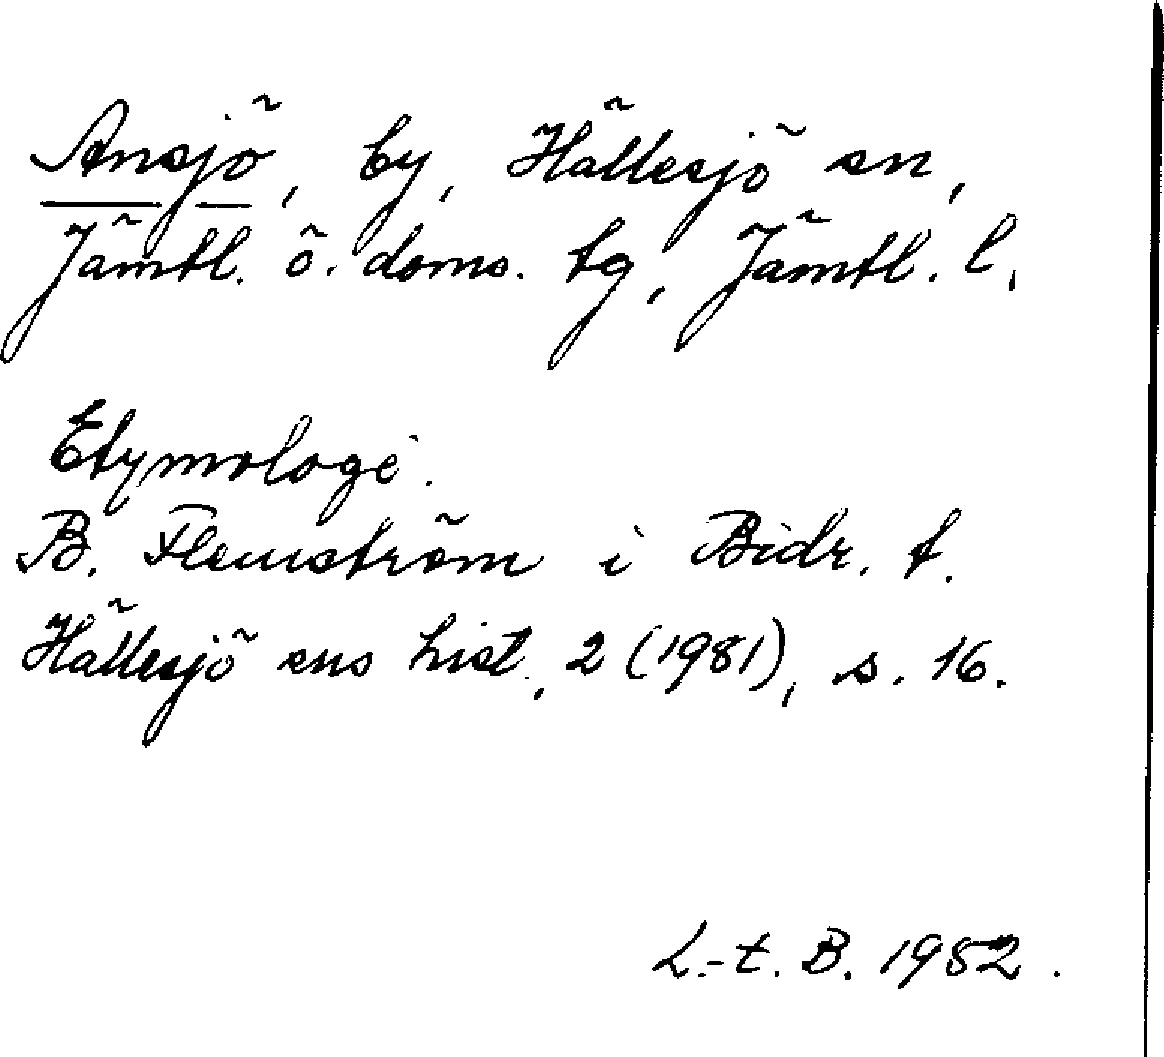 Ansjö, by, Hällesjö sn,
Jämtl. ö. doms. tg, Jämtl. l.
Etymologi.
B. Flemström i Bidr. t.
Hällesjö sns hist., 2 (1981), s. 16.
L.-t. B. 1982.